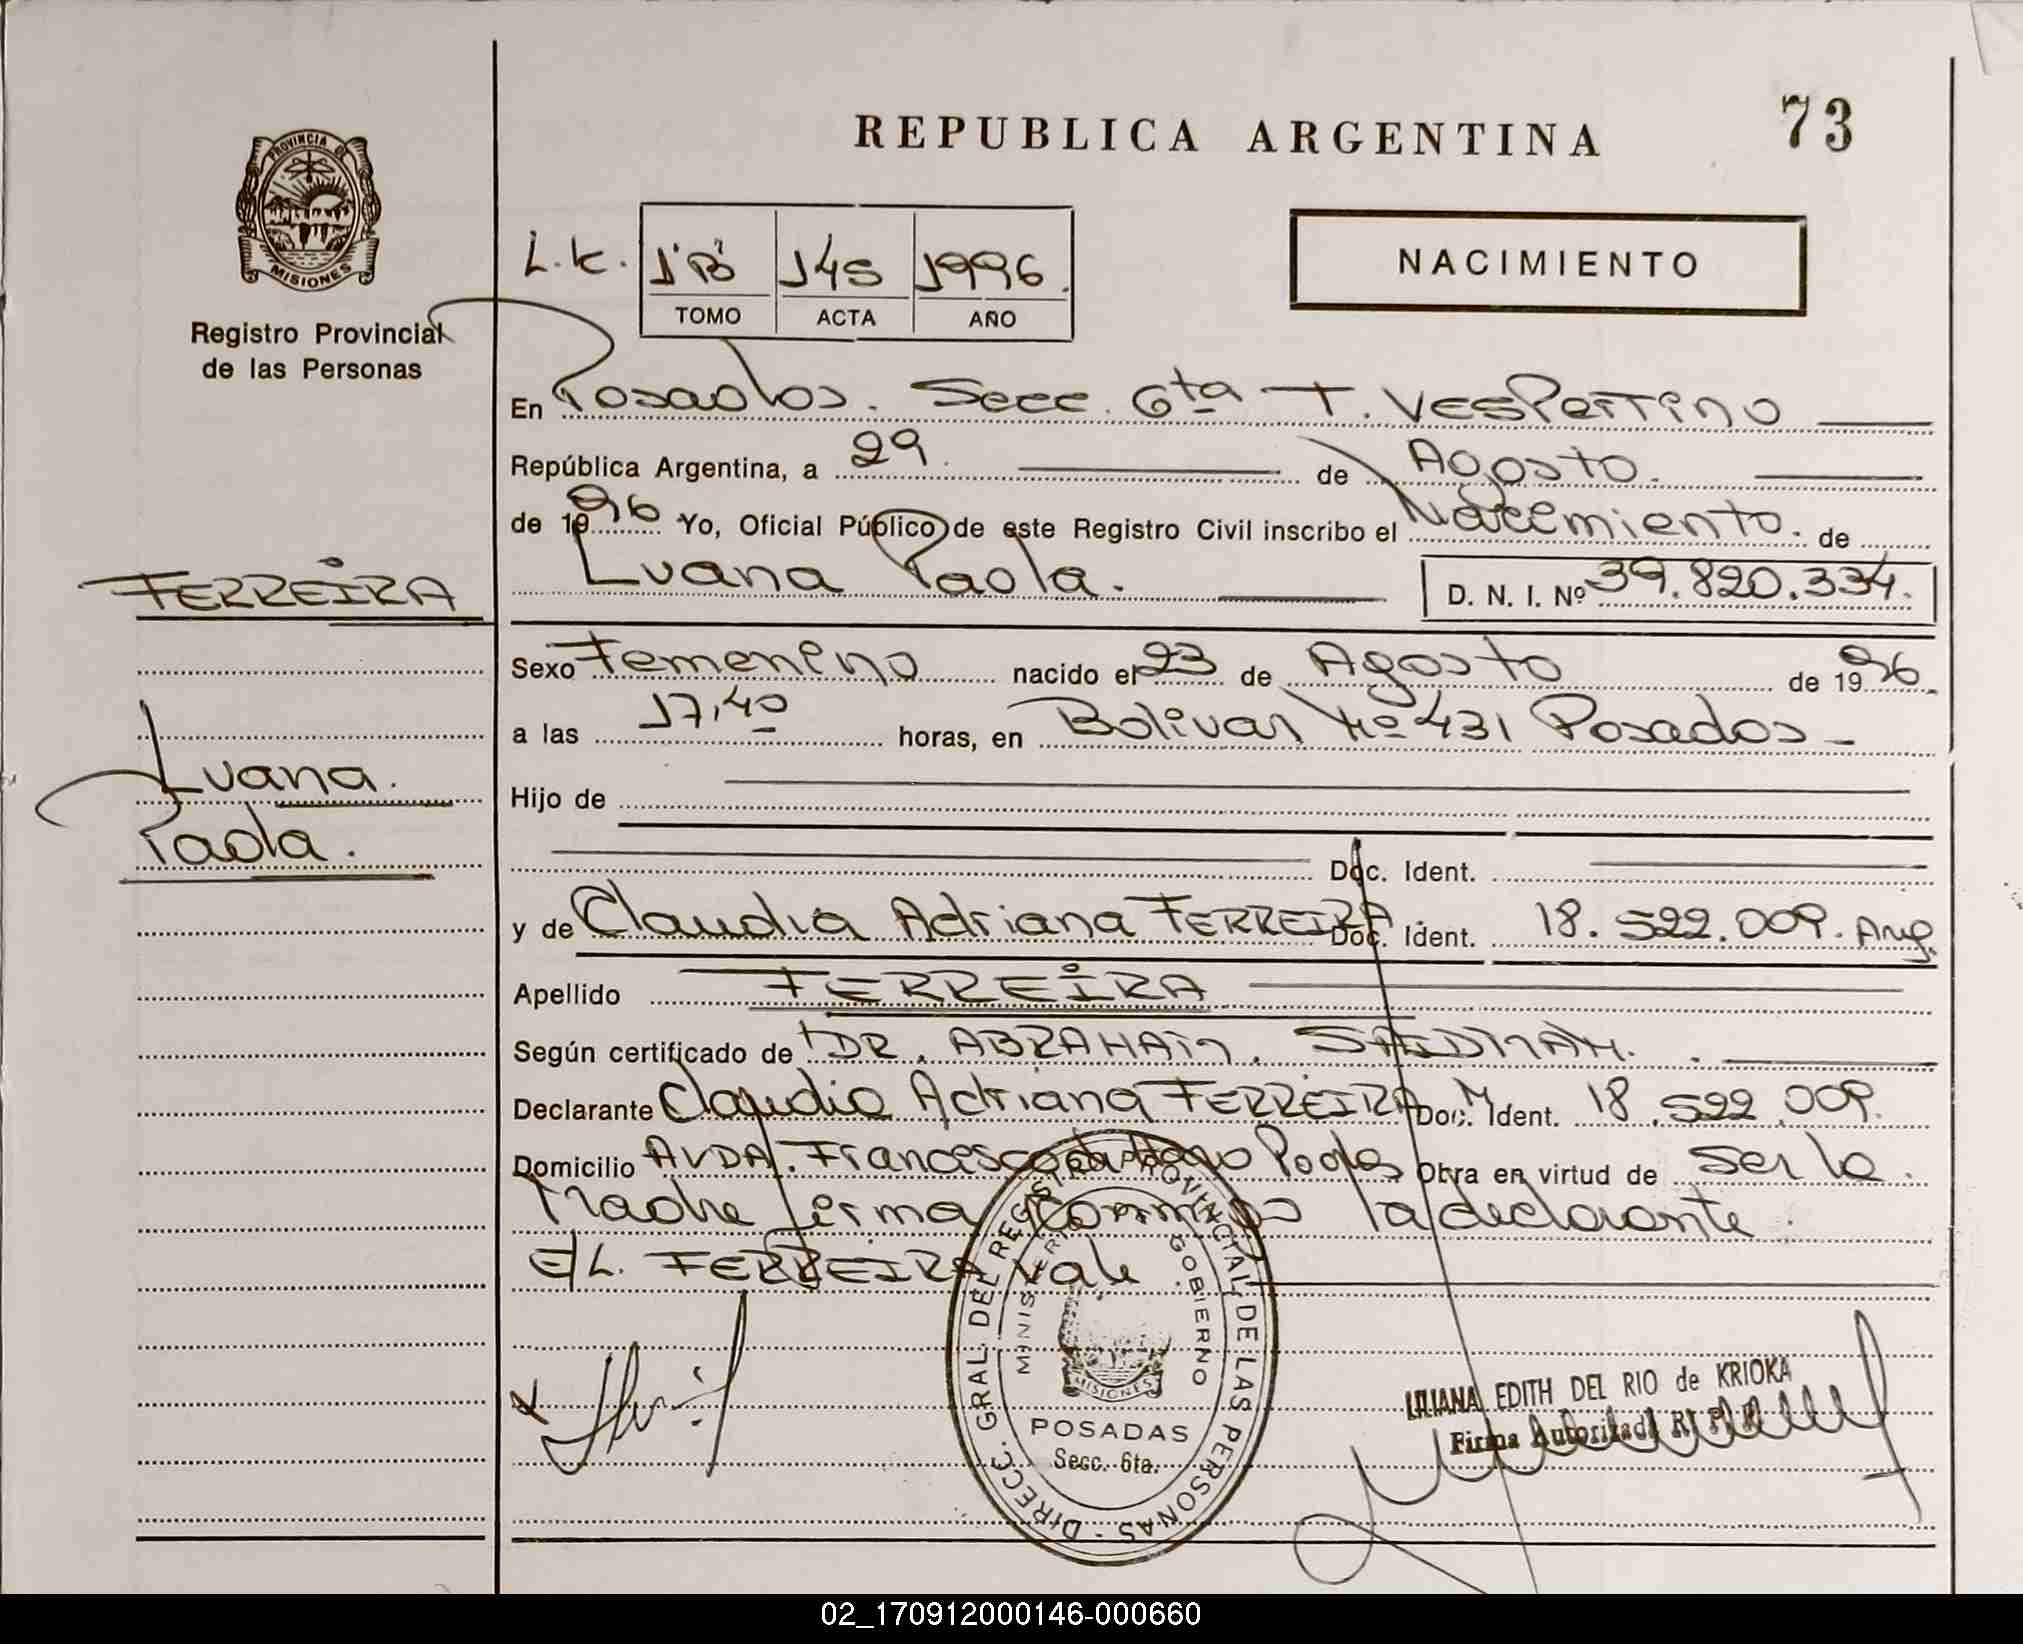 REPUBLICA ARGENTINA
73
PROVINCIA DE
MISIONES
Registro Provincial
de las Personas
L.K.
1ºB
145
1996.
TOMO
ACTA
AÑO
NACIMIENTO
En Posadas. Secc. 6ta T. Vespertino
República Argentina, a 29. de Agosto.
de 1996 Yo, Oficial Público de este Registro Civil inscribo el Nacimiento. de
Luana Paola. D. N. I. Nº 39.820.334.
FERREIRA
Luana.
Paola.
Sexo Femenino nacido el 23 de Agosto de 1996.
a las 17,40 horas, en Bolivar Nº 431 Posadas
Hijo de
Doc. Ident.
y de Claudia Adriana FERREIRA Doc. Ident. 18.522.009. Arg.
Apellido FERREIRA
Según certificado de DR. ABRAHAM.
Declarante Claudia Adriana FERREIRA Doc. Ident. 18.522.009.
Domicilio AVDA. Francisco de Obra en virtud de ser la
Madre firma conmigo la declarante.
E/L. FERREIRA Vale
DIRECC. GRAL. DEL REGISTRO PROVINCIAL DE LAS PERSONAS
MINISTERIO GOBIERNO
MISIONES
POSADAS
Secc. 6ta.
LILIANA EDITH DEL RIO de KRIOKA
Firma Autorizada R. P. P.
02_170912000146-000660